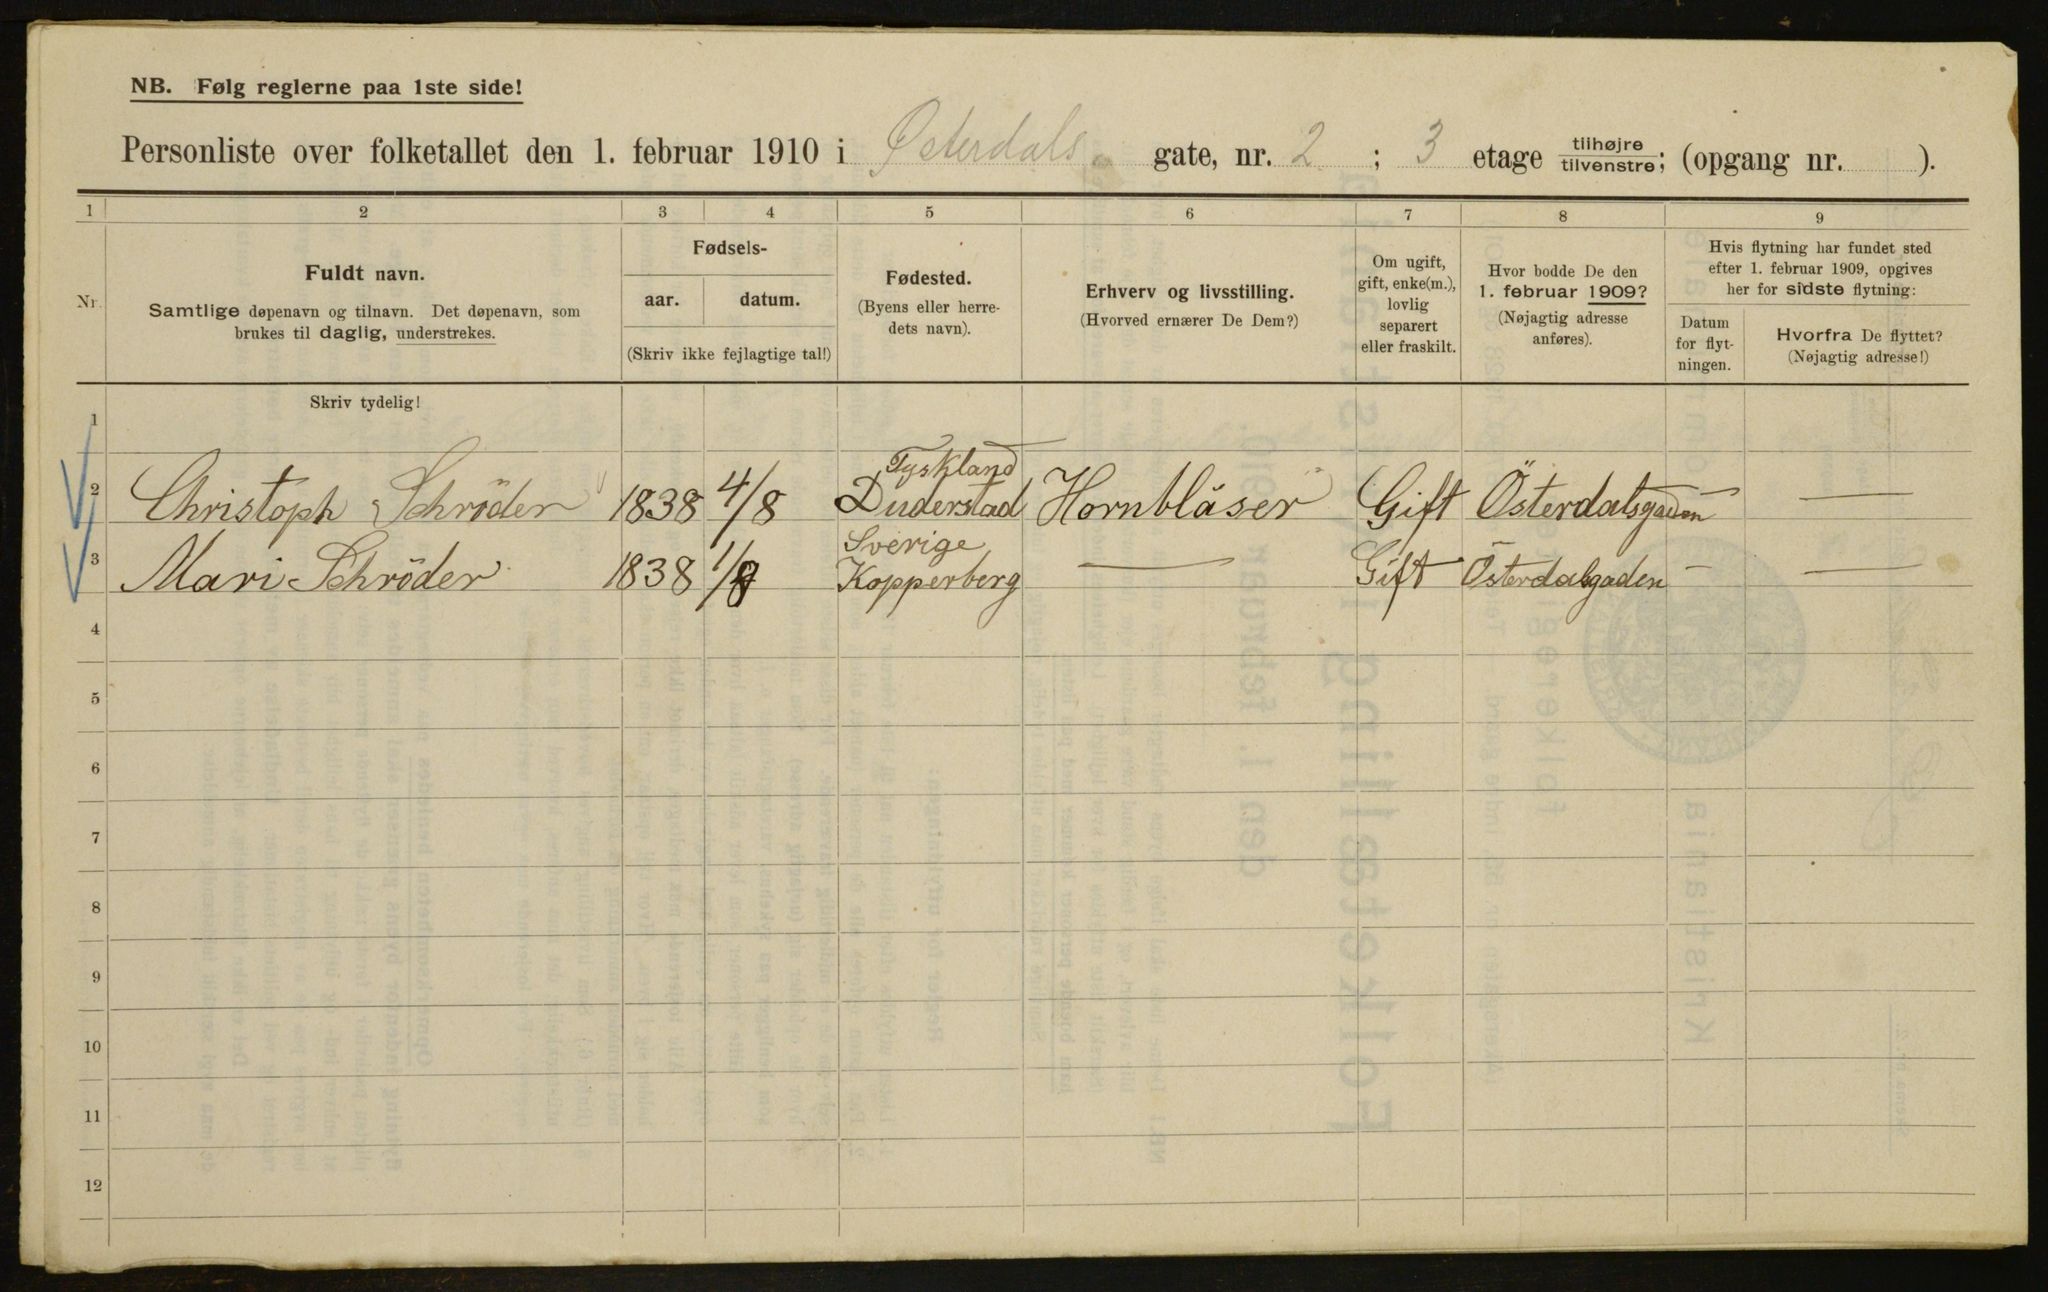 NB. Følg reglerne paa 1ste side!
Personliste over folketallet den 1. februar 1910 i Østerdals gate, nr. 2 ; 3 etage tilhøjre tilvenstre; (opgang nr. ).
1 2 3 4 5 6 7 8 9
Nr.
Fuldt navn.
Samtlige døpenavn og tilnavn. Det døpenavn, som
brukes til daglig, understrekes.
Fødsels-
aar. datum.
(Skriv ikke fejlagtige tal!)
Fødested.
(Byens eller herre-
dets navn).
Erhverv og livsstilling.
(Hvorved ernærer De Dem?)
Om ugift,
gift, enke(m.),
lovlig
separert
eller fraskilt.
Hvor bodde De den
1. februar 1909?
(Nøjagtig adresse
anføres).
Hvis flytning har fundet sted
efter 1. februar 1909, opgives
her for sidste flytning:
Datum
for flyt-
ningen.
Hvorfra De flyttet?
(Nøjagtig adresse!)
Skriv tydelig!
1
Tyskland
2 Christoph Schröder 1838 4/8 Duderstad Hornbläser Gift Österdalsgaden —
Sverige
3 Mari Schröder 1838 1/8 Kopperberg — Gift Österdalsgaden - —
4
5
6
7
8
9
10
11
12